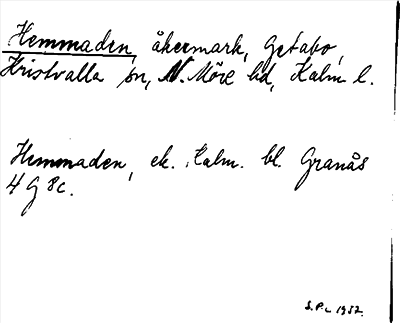 Hemmaden, åkermark, Getabo,
Kristvalla sn, N. Möre hd, Kalm. l.
Hemmaden, ek. Kalm. bl. Granås
4 G 8c.
S.P-L 1957.